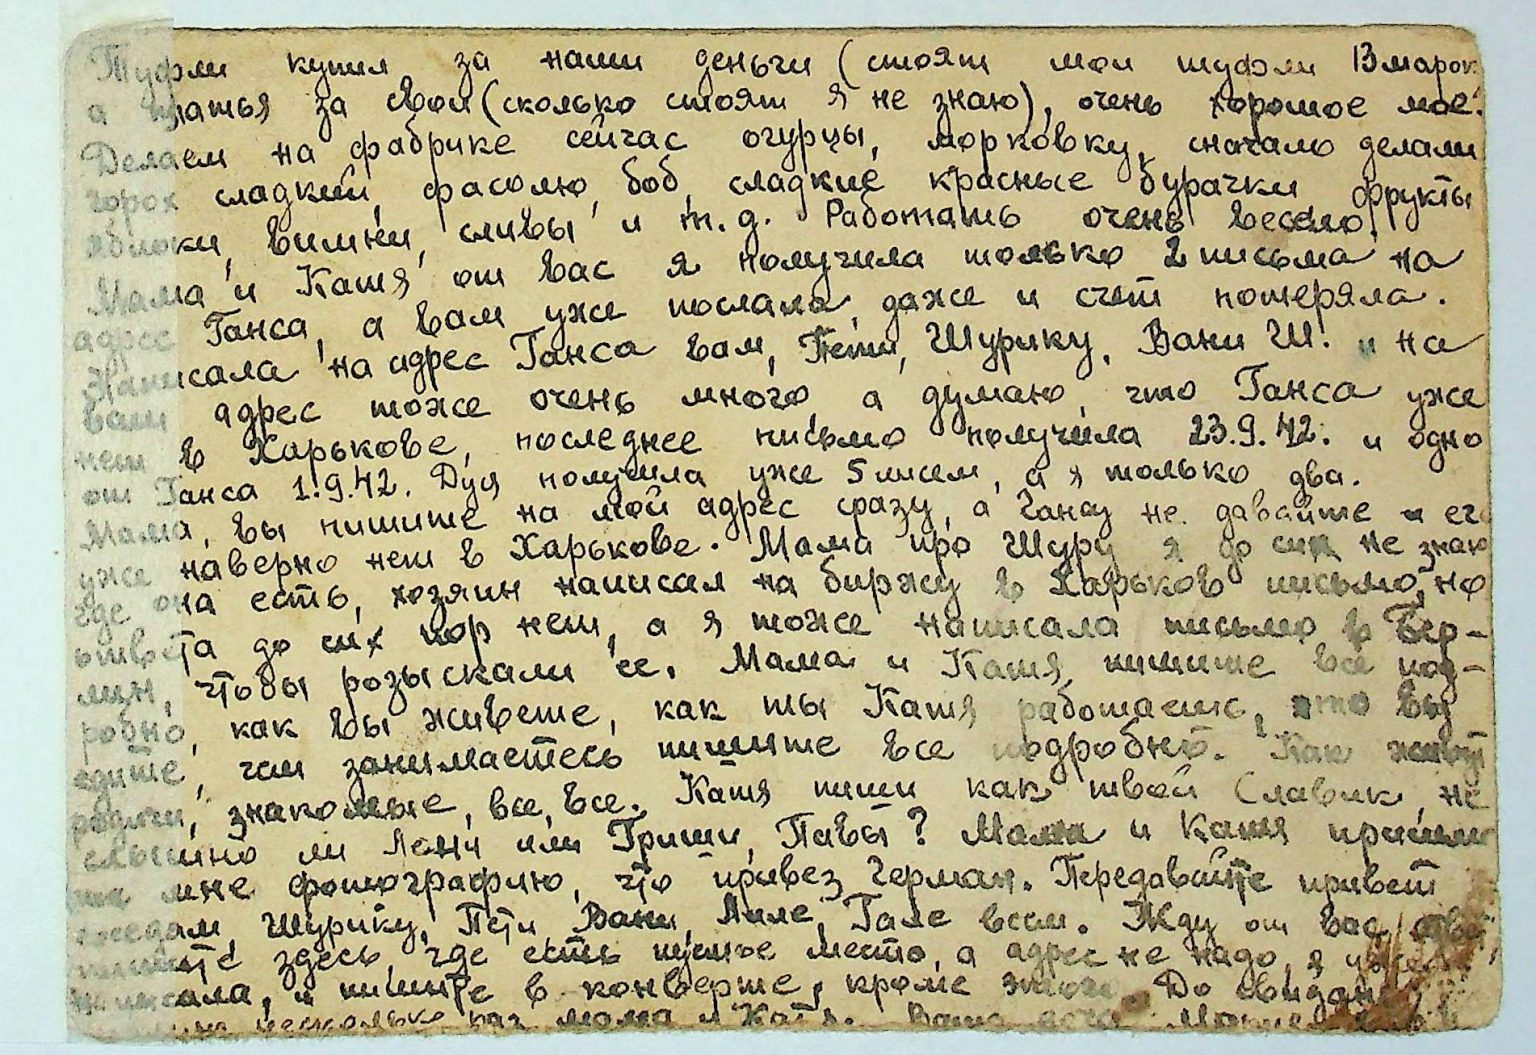 Туфли купил за наши деньги (стоят мои туфли 13 марок
а платья за свои (сколько стоят я не знаю), очень хорошое мое.
Делаем на фабрике сейчас огурцы, морковку, сначало делали
горох сладкий, фасолю, боб, сладкие красные бурачки фрукты
яблоки, вишни, сливы и т.д. Работать очень весело.
Мама и Катя от вас я получила только 2 письма на
адрес Ганса, а вам уже послала, даже и счет потеряла.
Написала на адрес Ганса вам, Пети, Шурику, Вани Ш. и на
ваш адрес тоже очень много, а думаю, что Ганса уже
нет в Харькове, последнее письмо получила 23.9.42. и одно
от Ганса 1.9.42. Дуся получила уже 5 писем, а я только два.
Мама, вы пишите на мой адрес сразу, а Гансу не давайте его
уже наверно нет в Харькове. Мама про Шуру я до сих не знаю
где она есть, хозяин написал на биржу в Харьков письмо, но
ответа до сих пор нет, а я тоже написала письмо в Бер-
лин, чтобы розыскали ее. Мама и Катя, пишите все под-
робно, как вы живете, как ты Катя работаешь, что вы
едите, чем занимаетесь пишите все подробно. Как живут
родичи, знакомые, все, все. Катя пиши как твой Славик, не
слышно ли Лени или Гриши, Павы? Мама и Катя пришли
те мне фотографию, что привез Герман. Передавайте привет
соседам, Шурику, Пети, Вани, Лиле, Гале всем. Жду от вас
пишите здесь, где есть пустое место, а адрес не надо, я уже
написала, и пишите в конверте, кроме этого. До свидан
несколько раз мама и Катя. Ваша